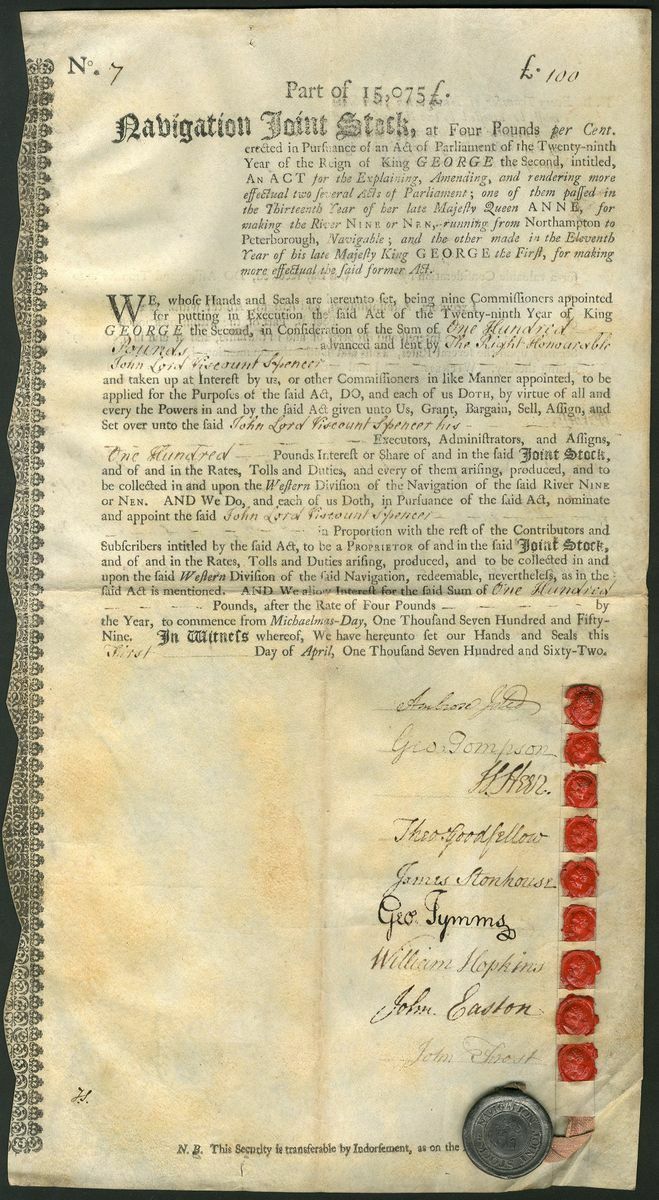 No. 7
£. 100
Part of 15,075£.
Navigation Joint Stock, at Four Pounds per Cent.
erected in Purſuance of an Act of Parliament of the Twenty-ninth
Year of the Reign of King GEORGE the Second, intitled,
AN ACT for the Explaining, Amending, and rendering more
effectual two ſeveral Acts of Parliament; one of them paſſed in
the Thirteenth Year of her late Majeſty Queen ANNE, for
making the River NINE or NEN, running from Northampton to
Peterborough, Navigable; and the other made in the Eleventh
Year of his late Majeſty King GEORGE the Firſt, for making
more effectual the ſaid former Act.
WE, whoſe Hands and Seals are hereunto ſet, being nine Commiſſioners appointed
for putting in Execution the ſaid Act of the Twenty-ninth Year of King
GEORGE the Second, in Conſideration of the Sum of One Hundred
Pounds advanced and lent by The Right Honourable
John Lord Viscount Spencer
and taken up at Intereſt by us, or other Commiſſioners in like Manner appointed, to be
applied for the Purpoſes of the ſaid Act, DO, and each of us DOTH, by virtue of all and
every the Powers in and by the ſaid Act given unto Us, Grant, Bargain, Sell, Aſſign, and
Set over unto the ſaid John Lord Viscount Spencer his
Executors, Adminiſtrators, and Aſſigns,
One Hundred Pounds Intereſt or Share of and in the ſaid Joint Stock,
and of and in the Rates, Tolls and Duties, and every of them ariſing, produced, and to
be collected in and upon the Weſtern Diviſion of the Navigation of the ſaid River NINE
or NEN. AND We Do, and each of us Doth, in Purſuance of the ſaid Act, nominate
and appoint the ſaid John Lord Viscount Spencer
in Proportion with the reſt of the Contributors and
Subſcribers intitled by the ſaid Act, to be a PROPRIETOR of and in the ſaid Joint Stock,
and of and in the Rates, Tolls and Duties ariſing, produced, and to be collected in and
upon the ſaid Weſtern Diviſion of the ſaid Navigation, redeemable, nevertheleſs, as in the
ſaid Act is mentioned. AND We allow Intereſt for the ſaid Sum of One Hundred
Pounds, after the Rate of Four Pounds by
the Year, to commence from Michaelmas-Day, One Thouſand Seven Hundred and Fifty-
Nine. In Witneſs whereof, We have hereunto ſet our Hands and Seals this
First Day of April, One Thouſand Seven Hundred and Sixty-Two.
Ambrose
Geo. Tompson
Theo. Goodfellow
James Stonhouse
Geo. Tymms
William Hopkins
John Easton
John Frost
N. B. This Security is transferable by Indorſement, as on the
NAVIGATION JOINT STOCK